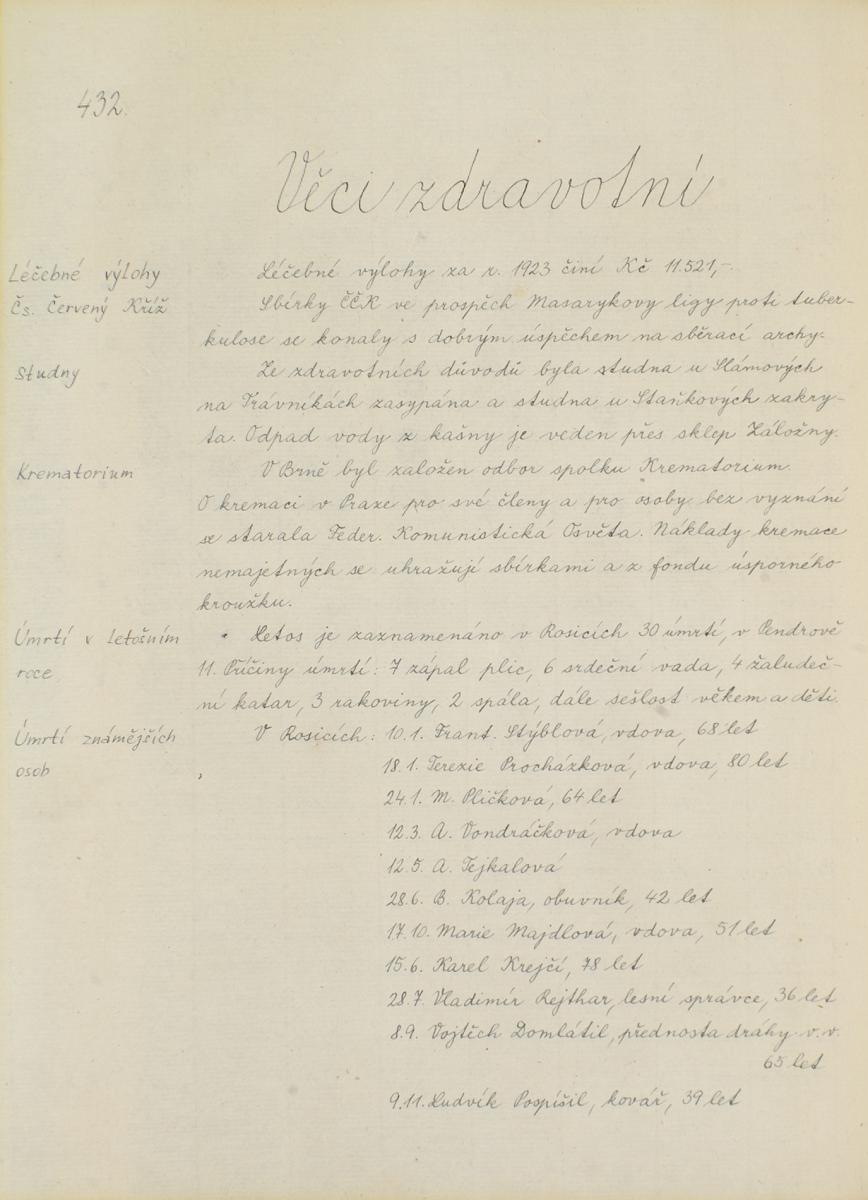 432.
Věci zdravotní
Léčebné výlohy
Léčebné výlohy za r. 1923 činí Kč 11.521,-.
Čs. Červený Kříž
Sbírky ČČK ve prospěch Masarykovy ligy proti tuber-
kulose se konaly s dobrým úspěchem na sběrací archy.
Studny
Ze zdravotních důvodů byla studna u Slámových
na Trávníkách zasypána a studna u Staňkových zakry-
ta. Odpad vody z kašny je veden přes sklep Záložny.
Krematorium
V Brně byl založen odbor spolku Krematorium.
O kremaci v Praze pro své členy a pro osoby bez vyznání
se starala Feder. Komunistická Osvěta. Náklady kremace
nemajetných se uhražují sbírkami a z fondu úsporného
kroužku.
Úmrtí v letošním
roce
Letos je zaznamenáno v Rosicích 30 úmrtí, v Pendrově
11. Příčiny úmrtí: 7 zápal plic, 6 srdeční vada, 4 žaludeč-
ní katar, 3 rakoviny, 2 spála, dále sešlost věkem a děti.
Úmrtí známějších
osob
V Rosicích: 10.1. Frant. Stýblová, vdova, 68 let
18.1. Terezie Procházková, vdova, 80 let
24.1. M. Pličková, 64 let
12.3. A. Vondráčková, vdova
12.5. A. Tejkalová
28.6. B. Kolaja, obuvník, 42 let
17.10. Marie Majdlová, vdova, 51 let
15.6. Karel Krejčí, 78 let
28.7. Vladimír Rejthar, lesní správce, 36 let
8.9. Vojtěch Domlátil, přednosta dráhy v.v.
65 let
9.11. Ludvík Pospíšil, kovář, 39 let